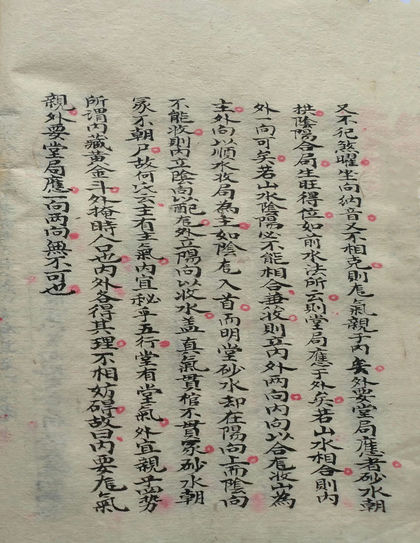 又不犯煞曜坐向納音又不相克則龙氣親于内矣外要堂局應者砂水朝
拱陰陽合局生旺得位如前水法所云則堂局應于外矣若山水相合則内
外一向可矣若山水陰陽必不能相合兼收則立内外两向内向以合龙收山為
主外向以順水收局為主如陰龙入首而明堂砂水却在陽向上而陰向
不能收則内立陰向以配龙外立陽向以收水盖真氣貫棺不貫冢砂水朝
冢不朝尸故何公云主有主氣内宜秘乎五行堂有堂氣外宜親乎四势
所謂内藏黄金斗外掩時人口也内外各得其理不相妨碍故曰内要龙氣
親外要堂局應一向两向無不可也